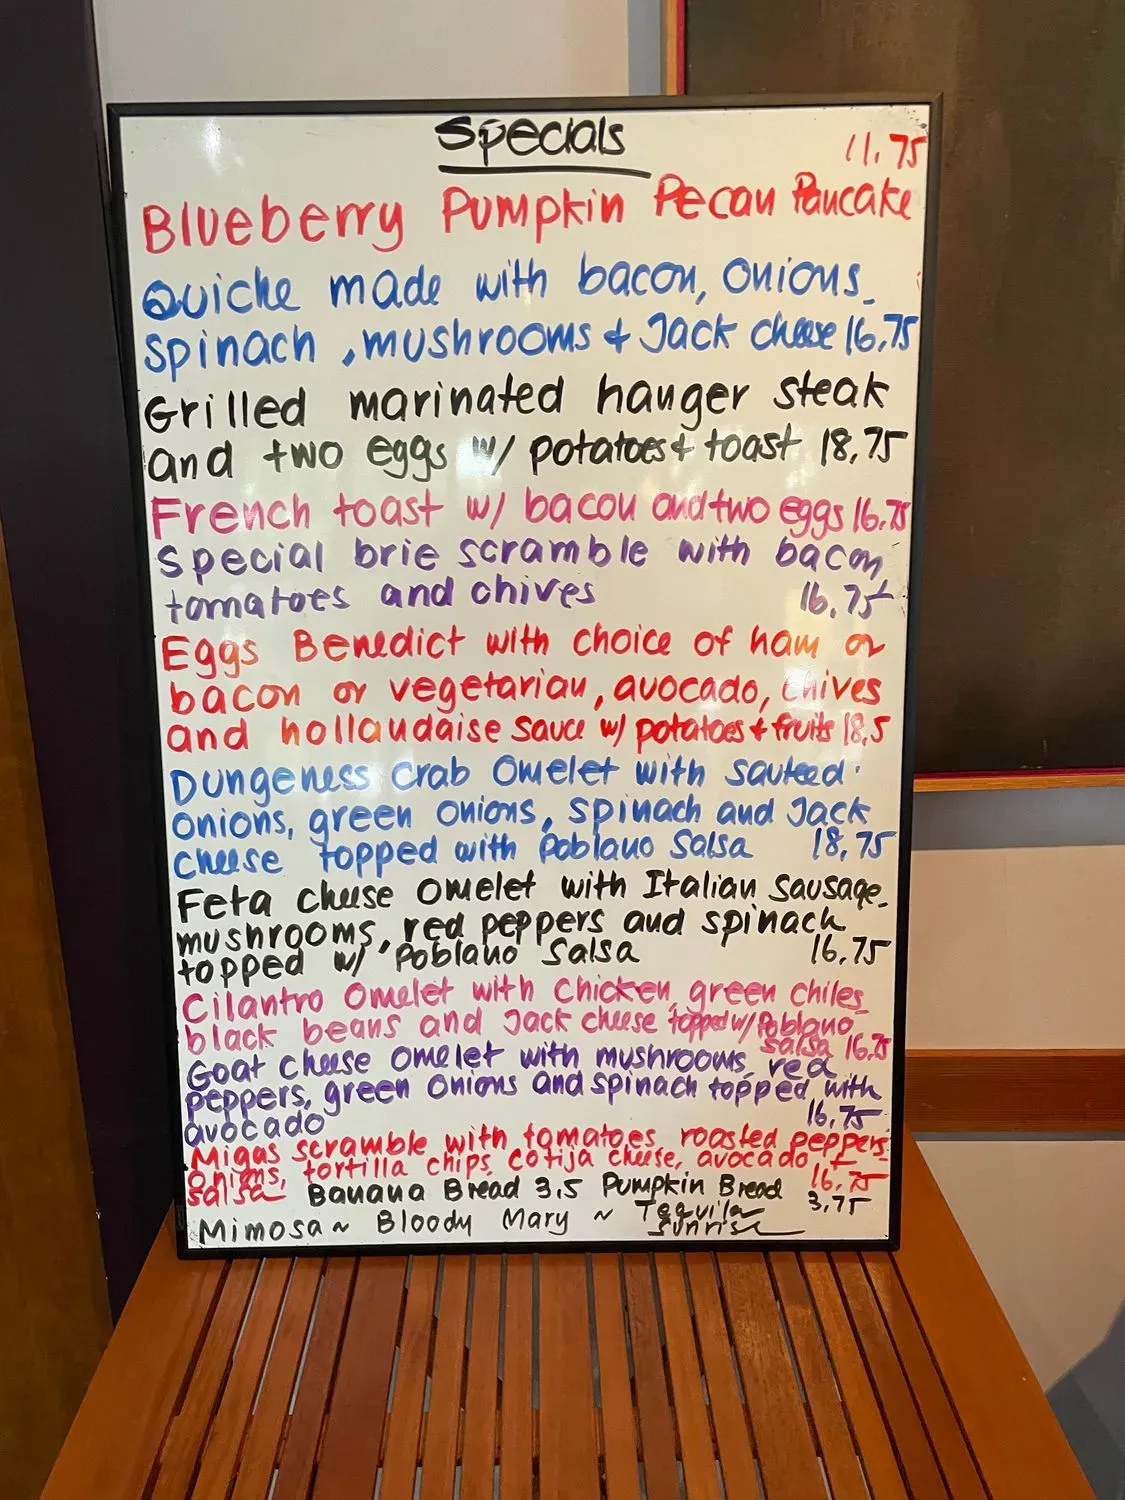 Specials
11.75
Blueberry Pumpkin Pecan Pancake
Quiche made with bacon, onions
spinach, mushrooms + Jack cheese 16.75
Grilled marinated hanger steak
and two eggs w/ potatoes + toast 18.75
French toast w/ bacon and two eggs 16.75
Special brie scramble with bacon,
tomatoes and chives 16.75
Eggs Benedict with choice of ham or
bacon or vegetarian, avocado, chives
and hollandaise sauce w/ potatoes + fruits 18.5
Dungeness crab omelet with sauteed
onions, green onions, spinach and Jack
cheese topped with Poblano Salsa 18.75
Feta cheese omelet with Italian sausage,
mushrooms, red peppers and spinach
topped w/ Poblano Salsa 16.75
Cilantro omelet with chicken, green chiles
black beans and Jack cheese topped w/ Poblano
salsa 16.75
Goat cheese omelet with mushrooms, red
peppers, green onions and spinach topped with
avocado 16.75
Migas scramble with tomatoes, roasted peppers
onions, tortilla chips, cotija cheese, avocado +
salsa 16.75
Banana Bread 3.5 Pumpkin Bread 3.75
Mimosa ~ Bloody Mary ~ Tequila
Sunrise